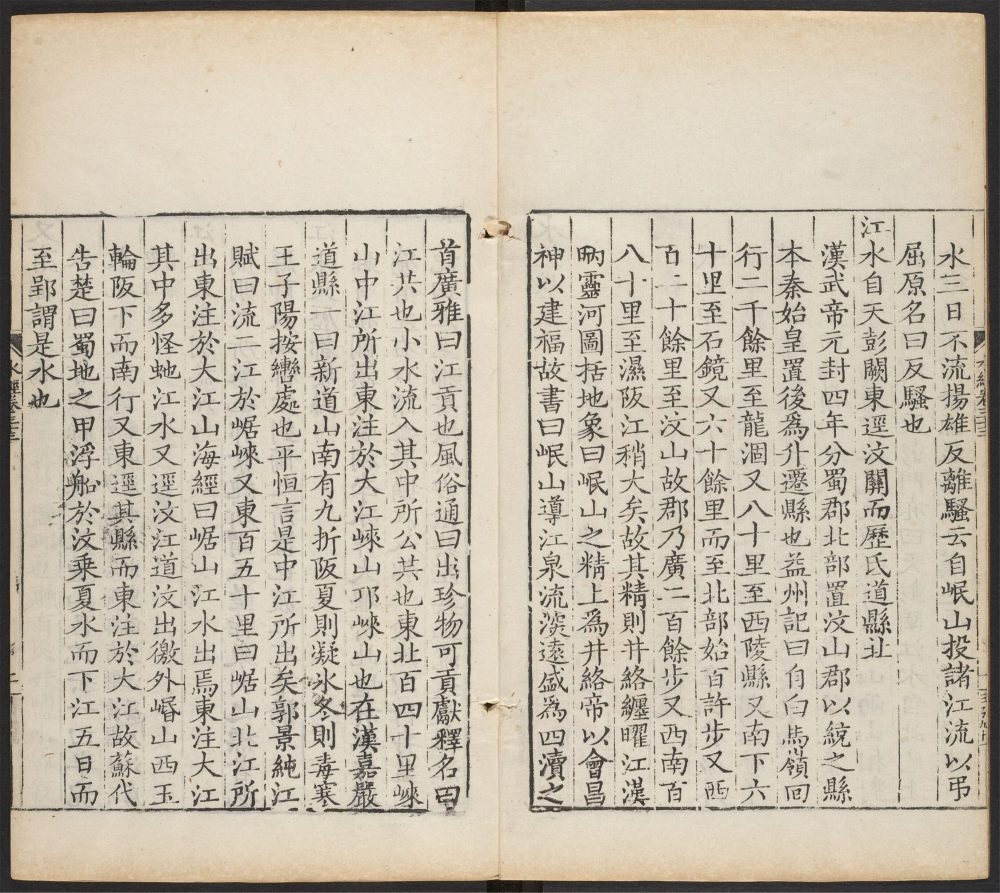 水三日不流揚雄反離騷云自岷山投諸江流以弔
屈原名曰反騷也
江水自天彭闕東逕汶關而歷氏道縣北
漢武帝元封四年分蜀郡北部置汶山郡以統之縣
本秦始皇置後為升遷縣也益州記曰自白馬嶺回
行二千餘里至龍涸又八十里至西陵縣又南下六
十里至石鏡又六十餘里而至北部始百許步又西
百二十餘里至汶山故郡乃廣二百餘步又西南百
八十里至濕阪江稍大矣故其精則井絡纏曜江漢
昞靈河圖括地象曰岷山之精上為井絡帝以會昌
神以建福故書曰岷山導江泉流深遠盛為四瀆之
首廣雅曰江貢也風俗通曰出珍物可貢獻釋名曰
江共也小水流入其中所公共也東北百四十里崍
山中江所出東注於大江崍山邛崍山也在漢嘉嚴
道縣一曰新道山南有九折阪夏則凝冰冬則毒寒
王子陽按轡處也平恒言是中江所出矣郭景純江
賦曰流二江於崌崍又東百五十里曰崌山北江所
出東注於大江山海經曰崌山江水出焉東注大江
其中多怪虵江水又逕汶江道汶出徼外㟭山西玉
輪阪下而南行又東逕其縣而東注於大江故蘇代
告楚曰蜀地之甲浮船於汶乘夏水而下江五日而
至郢謂是水也
水經卷三十三